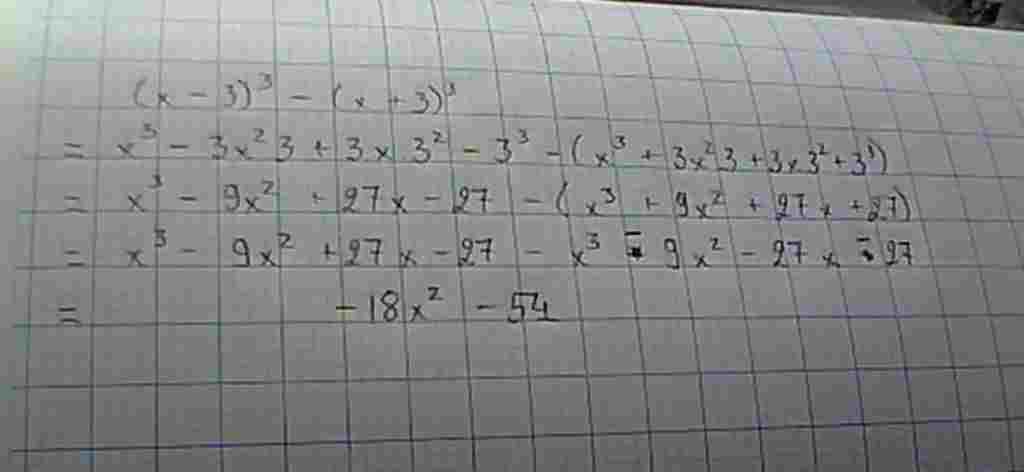 (x - 3)³ - (x + 3)³
= x³ - 3x²3 + 3x 3² - 3³ - (x³ + 3x²3 + 3x3² + 3³)
= x³ - 9x² + 27x - 27 - (x³ + 9x² + 27x + 27)
= x³ - 9x² + 27x - 27 - x³ - 9x² - 27x - 27
= -18x² - 54